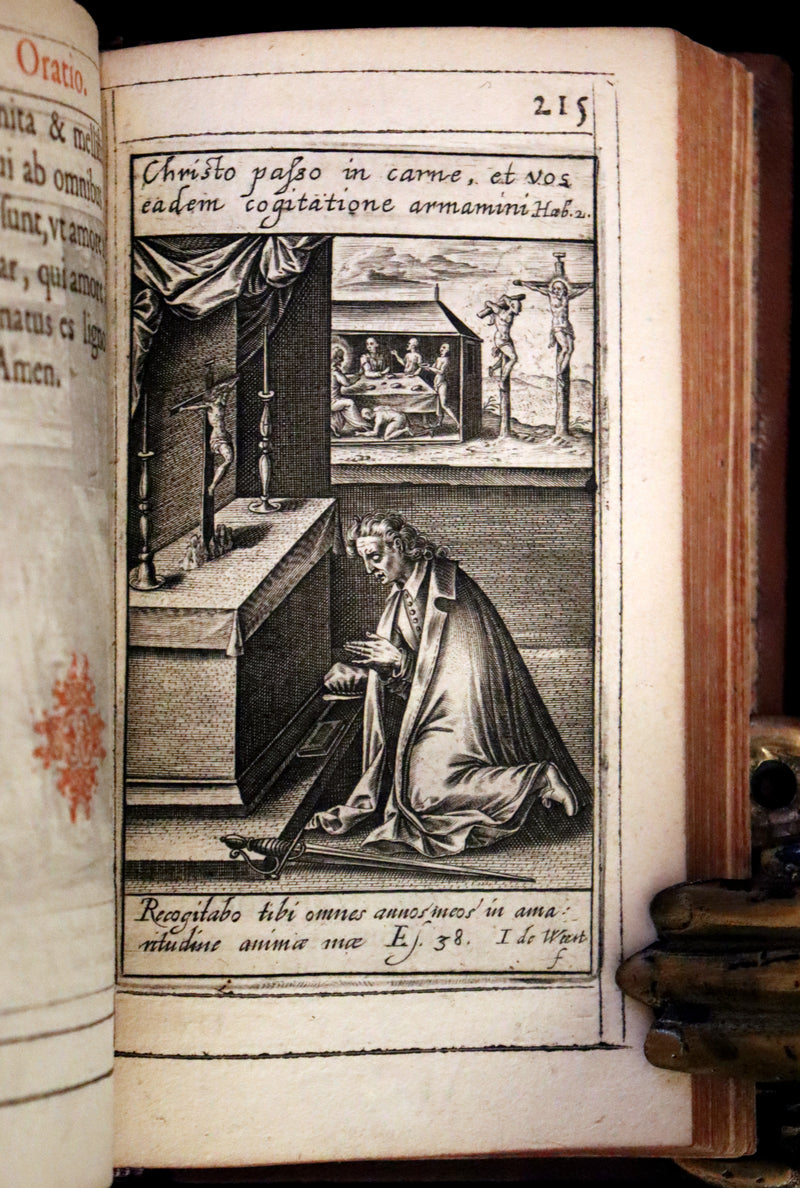 Oratio.
nita & mellif
ni ab omnibus
sunt, vt amore
ar, qui amore
natus es ligno
Amen.
215
Christo paſso in carne, et vos
eadem cogitatione armamini Hæb. 2.
Recogitabo tibi omnes annos meos in ama:
ritudine animæ meæ Eſ. 38. I de Weert
f